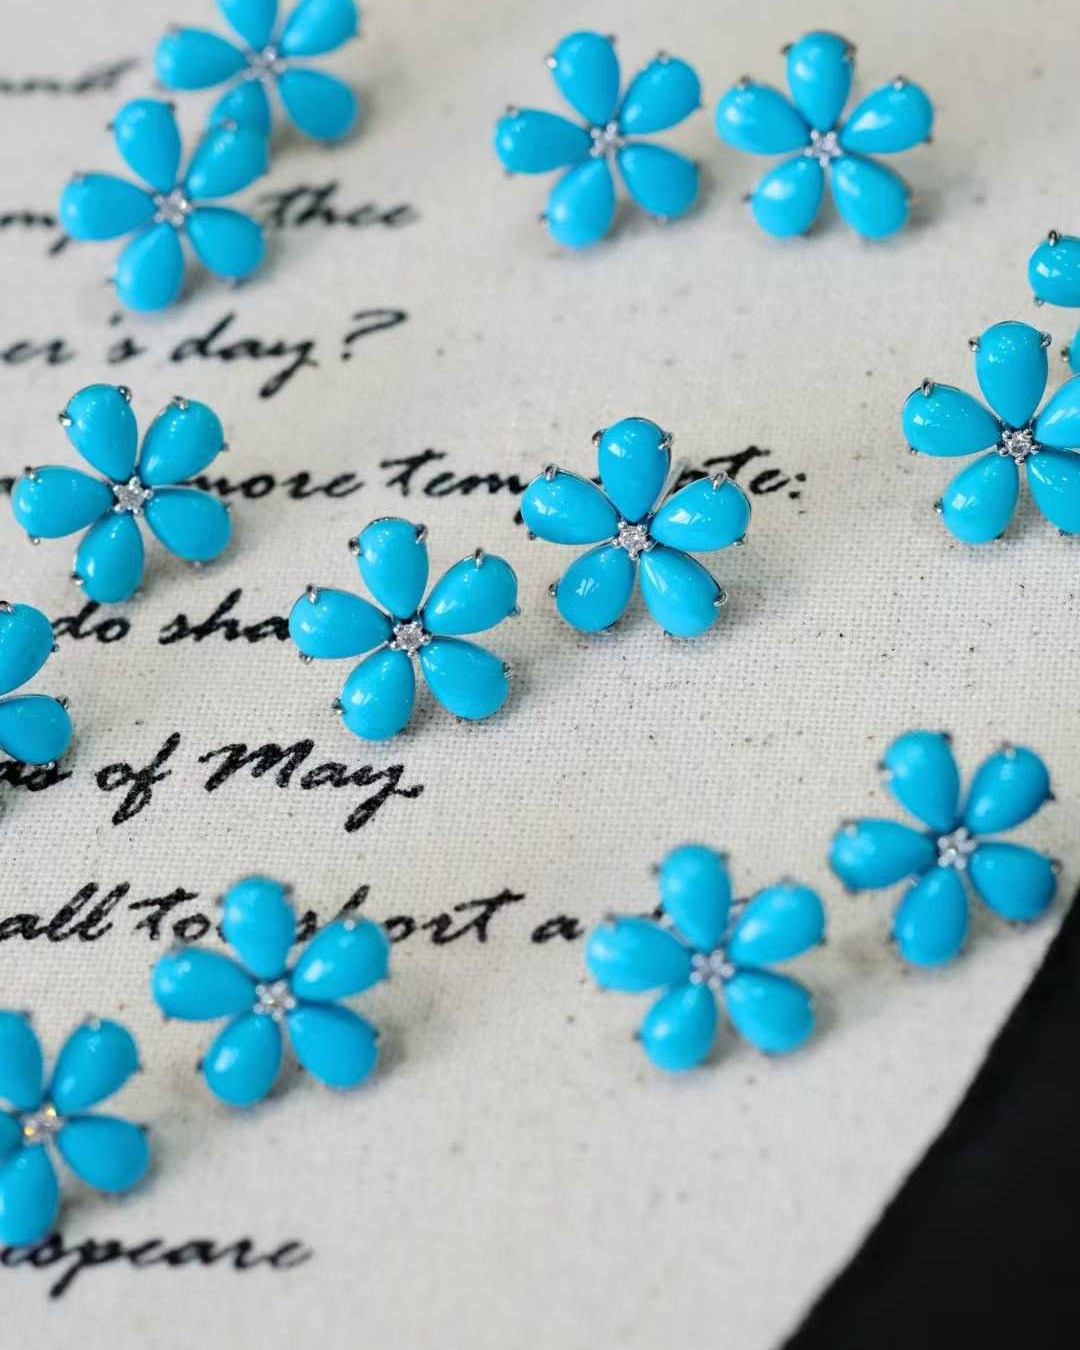 thee
er's day?
more temp te:
do sha
of May,
all too short a
speare